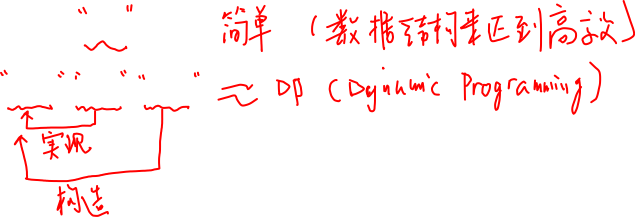 " " 简单 (数据结构来达到高效)
" " " " " " ≈ DP (Dynamic Programming)
实现
构造